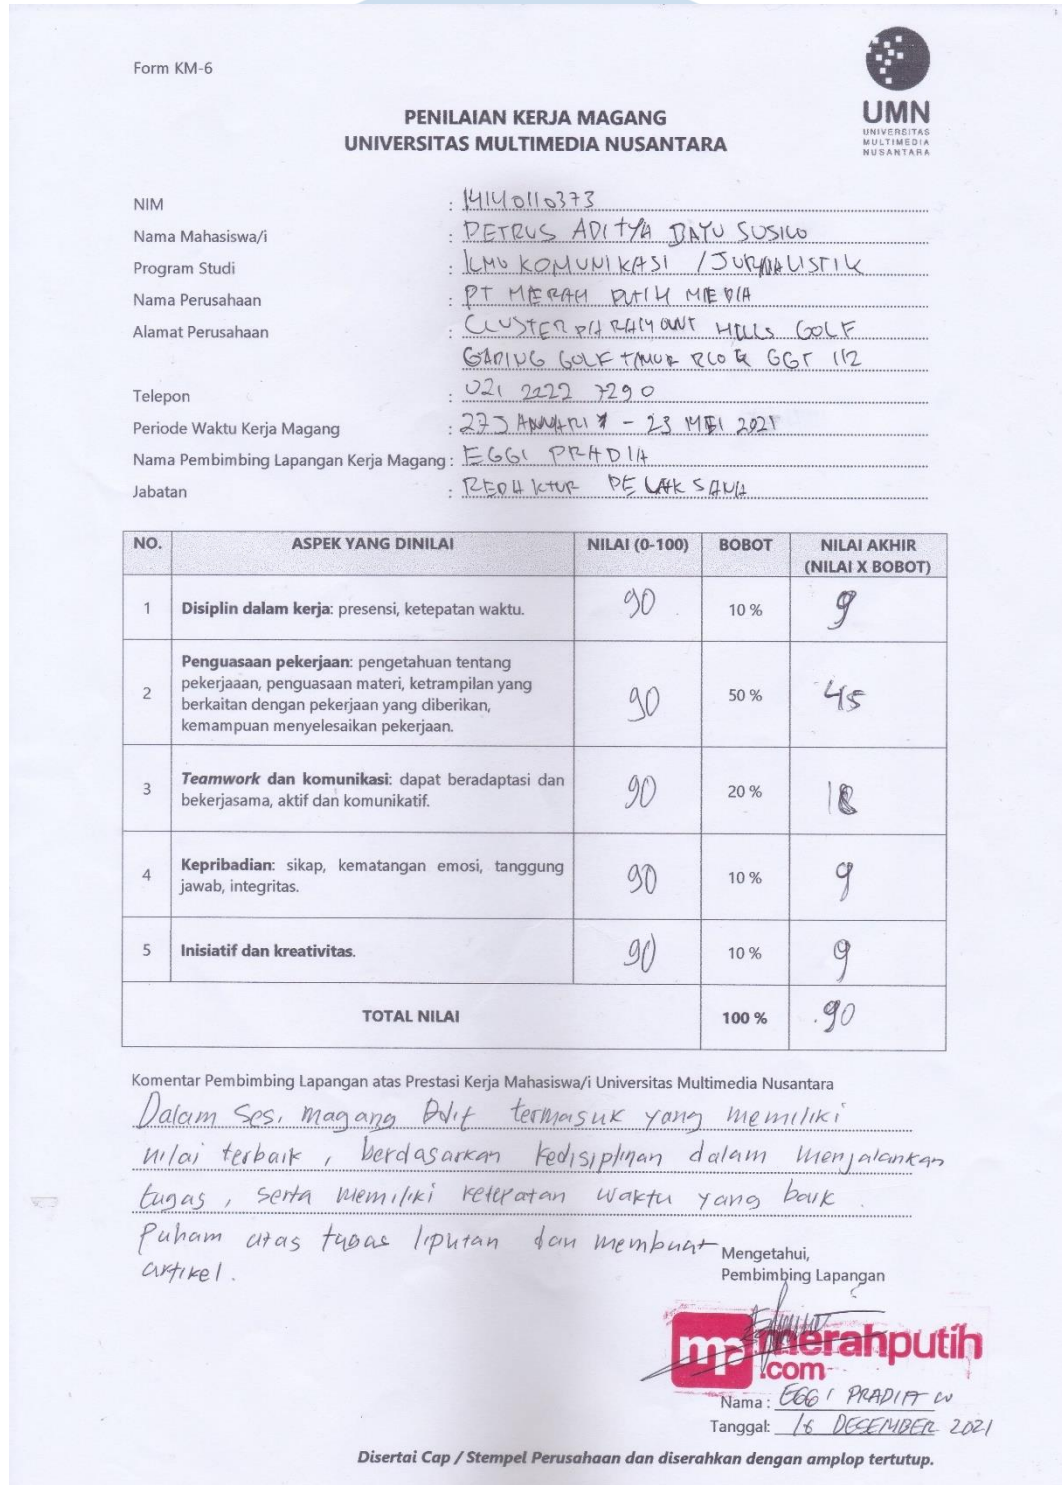 Form KM-6
UMN
UNIVERSITAS
MULTIMEDIA
NUSANTARA
PENILAIAN KERJA MAGANG
UNIVERSITAS MULTIMEDIA NUSANTARA
NIM : 14140110373
Nama Mahasiswa/i : PETRUS ADITYA BAYU SUSILO
Program Studi : ILMU KOMUNIKASI / JURNALISTIK
Nama Perusahaan : PT MERAH PUTIH MEDIA
Alamat Perusahaan : CLUSTER PARAMOUNT HILLS GOLF
GADING GOLF TIMUR GGT 112
Telepon : 021 2222 7290
Periode Waktu Kerja Magang : 27 JANUARI - 23 MEI 2021
Nama Pembimbing Lapangan Kerja Magang : EGGI PRADIA
Jabatan : REDAKTUR PELAKSANA
NO. ASPEK YANG DINILAI NILAI (0-100) BOBOT NILAI AKHIR
(NILAI X BOBOT)
1 Disiplin dalam kerja: presensi, ketepatan waktu. 90 10 % 9
2 Penguasaan pekerjaan: pengetahuan tentang
pekerjaaan, penguasaan materi, ketrampilan yang
berkaitan dengan pekerjaan yang diberikan,
kemampuan menyelesaikan pekerjaan. 90 50 % 45
3 Teamwork dan komunikasi: dapat beradaptasi dan
bekerjasama, aktif dan komunikatif. 90 20 % 18
4 Kepribadian: sikap, kematangan emosi, tanggung
jawab, integritas. 90 10 % 9
5 Inisiatif dan kreativitas. 90 10 % 9
TOTAL NILAI 100 % 90
Komentar Pembimbing Lapangan atas Prestasi Kerja Mahasiswa/i Universitas Multimedia Nusantara
Dalam Sesi magang termasuk yang memiliki
nilai terbaik, berdasarkan kedisiplinan dalam menjalankan
tugas, serta memiliki ketepatan waktu yang baik
Paham atas tugas liputan dan membuat
artikel.
Mengetahui,
Pembimbing Lapangan
mp merahputih
.com
Nama : EGGI PRADITA W
Tanggal: 16 DESEMBER 2021
Disertai Cap / Stempel Perusahaan dan diserahkan dengan amplop tertutup.